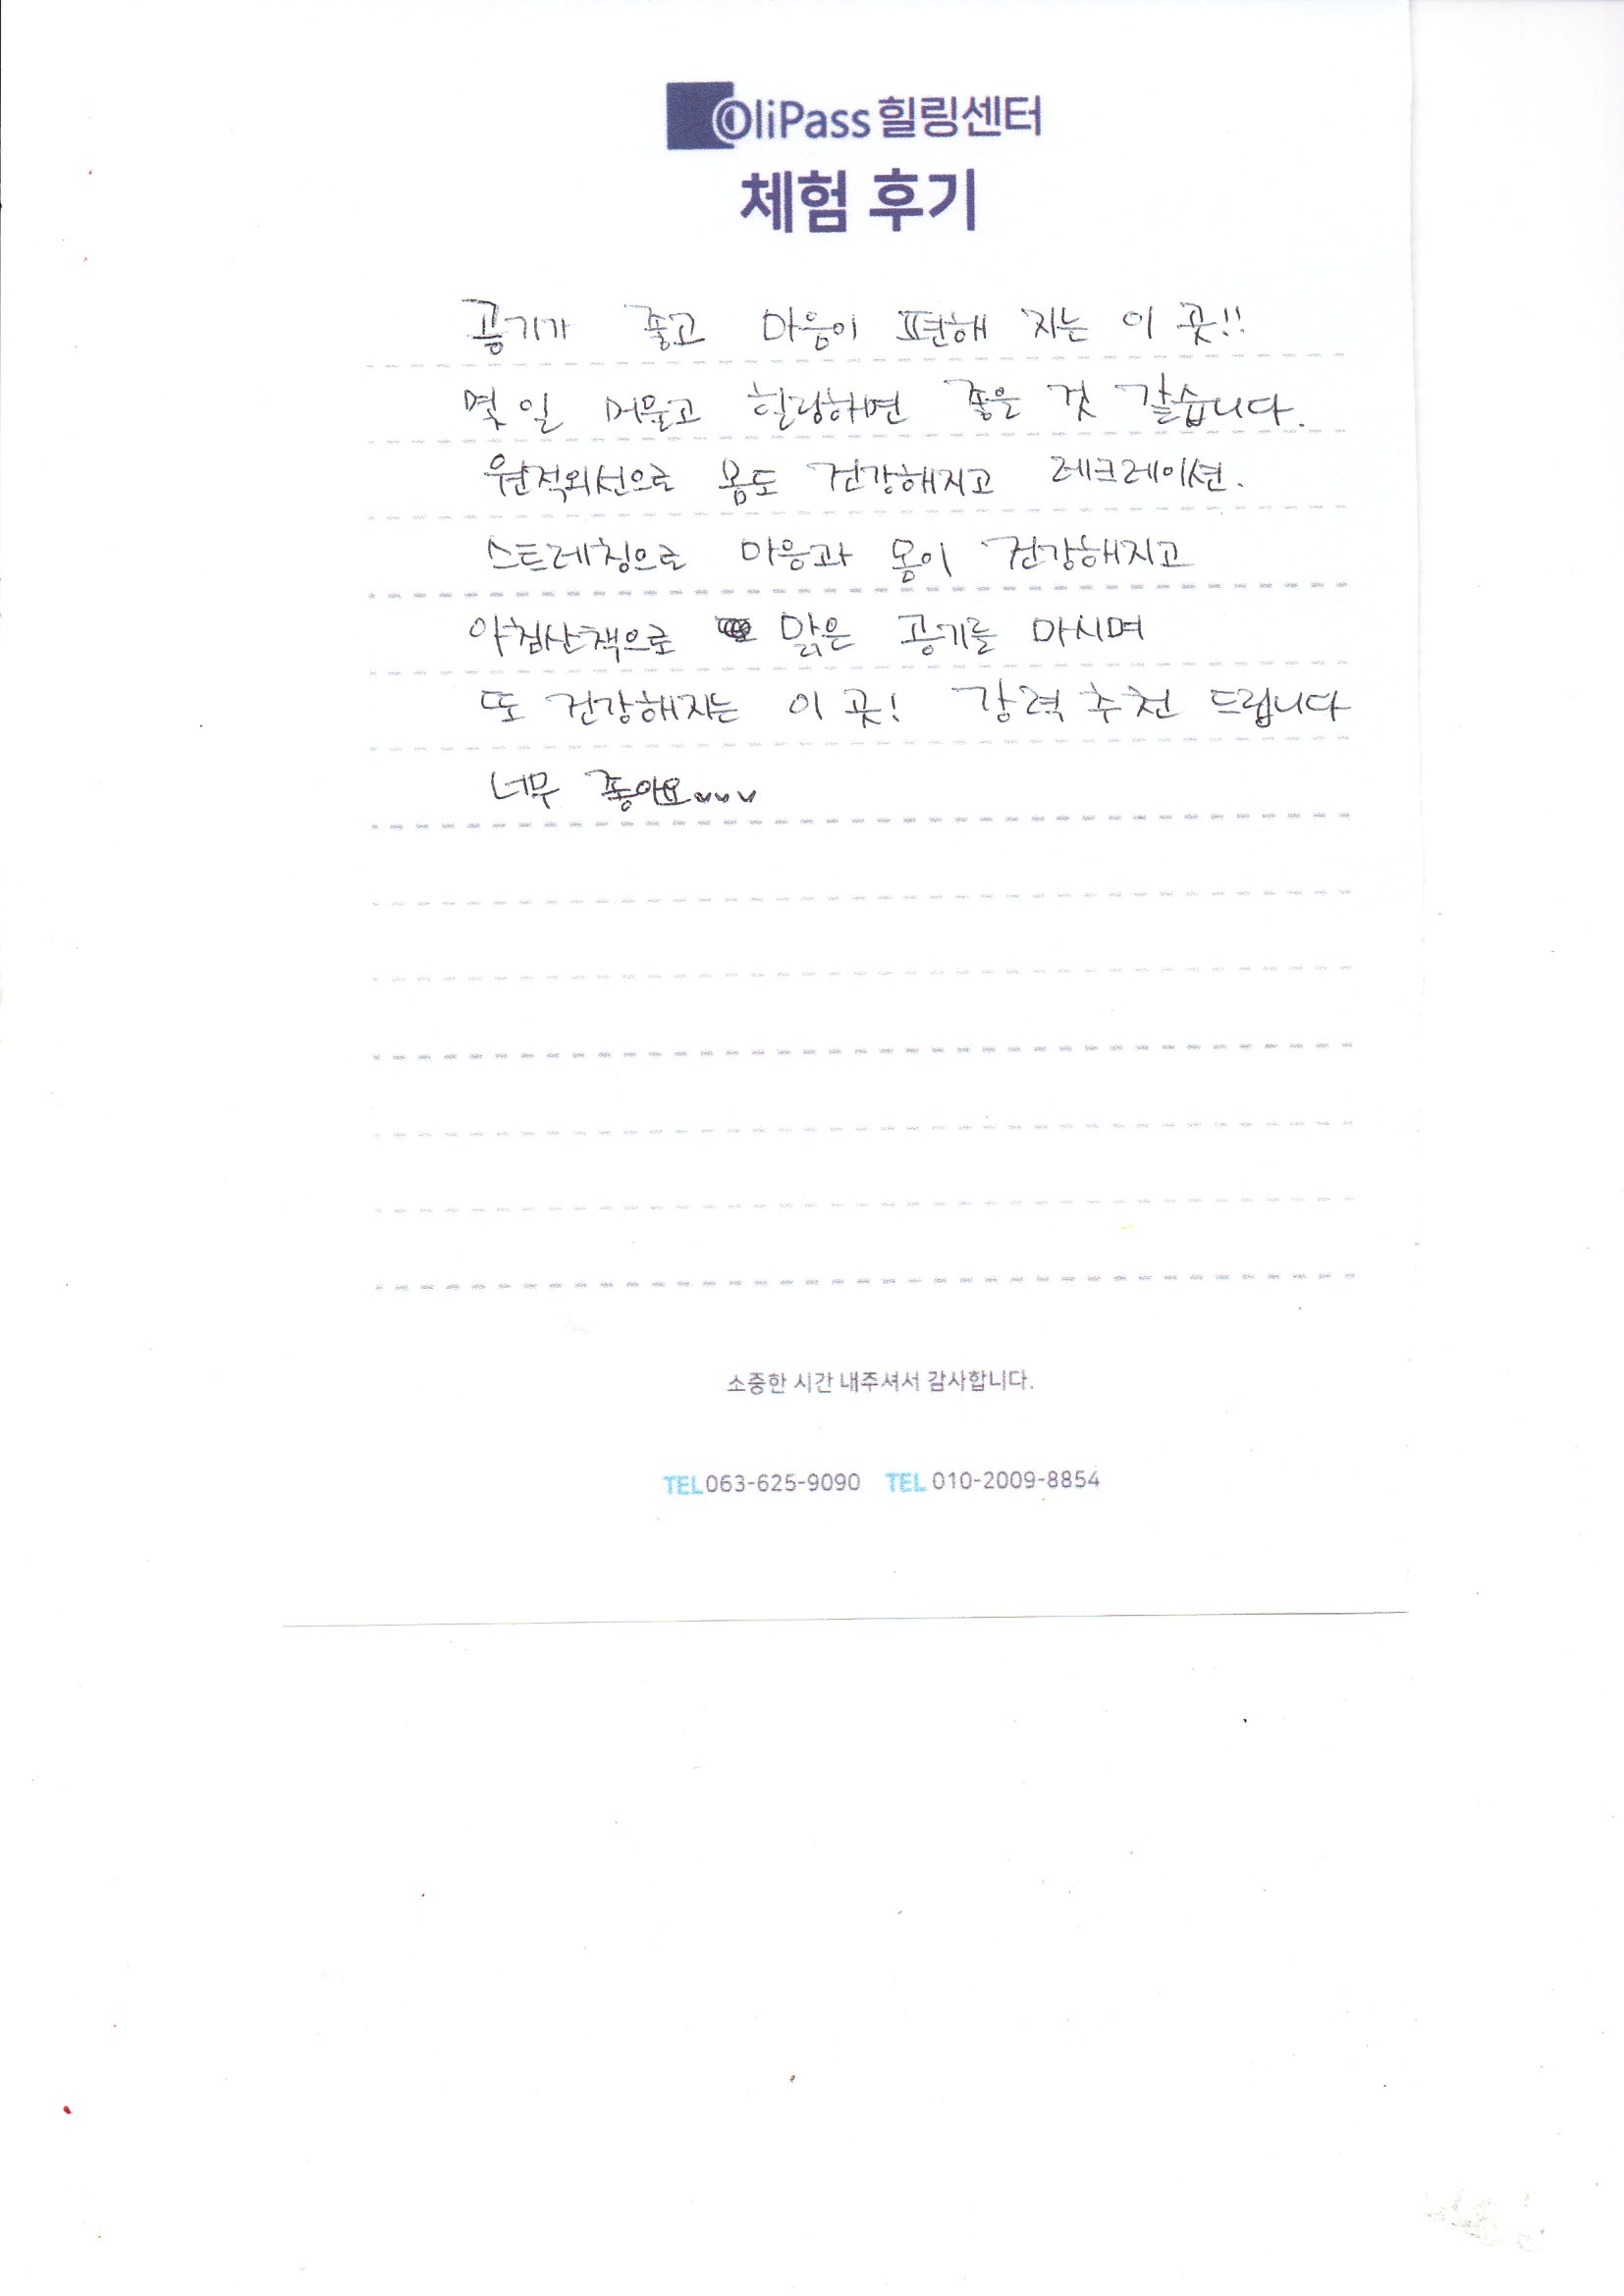 OliPass 힐링센터
체험 후기
공기가 좋고 마음이 편해 지는 이 곳!!
몇 일 머물고 힐링하면 좋은 것 같습니다.
원적외선으로 몸도 건강해지고 레크레이션.
스트레칭으로 마음과 몸이 건강해지고
아침산책으로 맑은 공기를 마시며
또 건강해지는 이 곳! 강력 추천 드립니다
너무 좋아요
소중한 시간 내주셔서 감사합니다.
TEL 063-625-9090 TEL 010-2009-8854